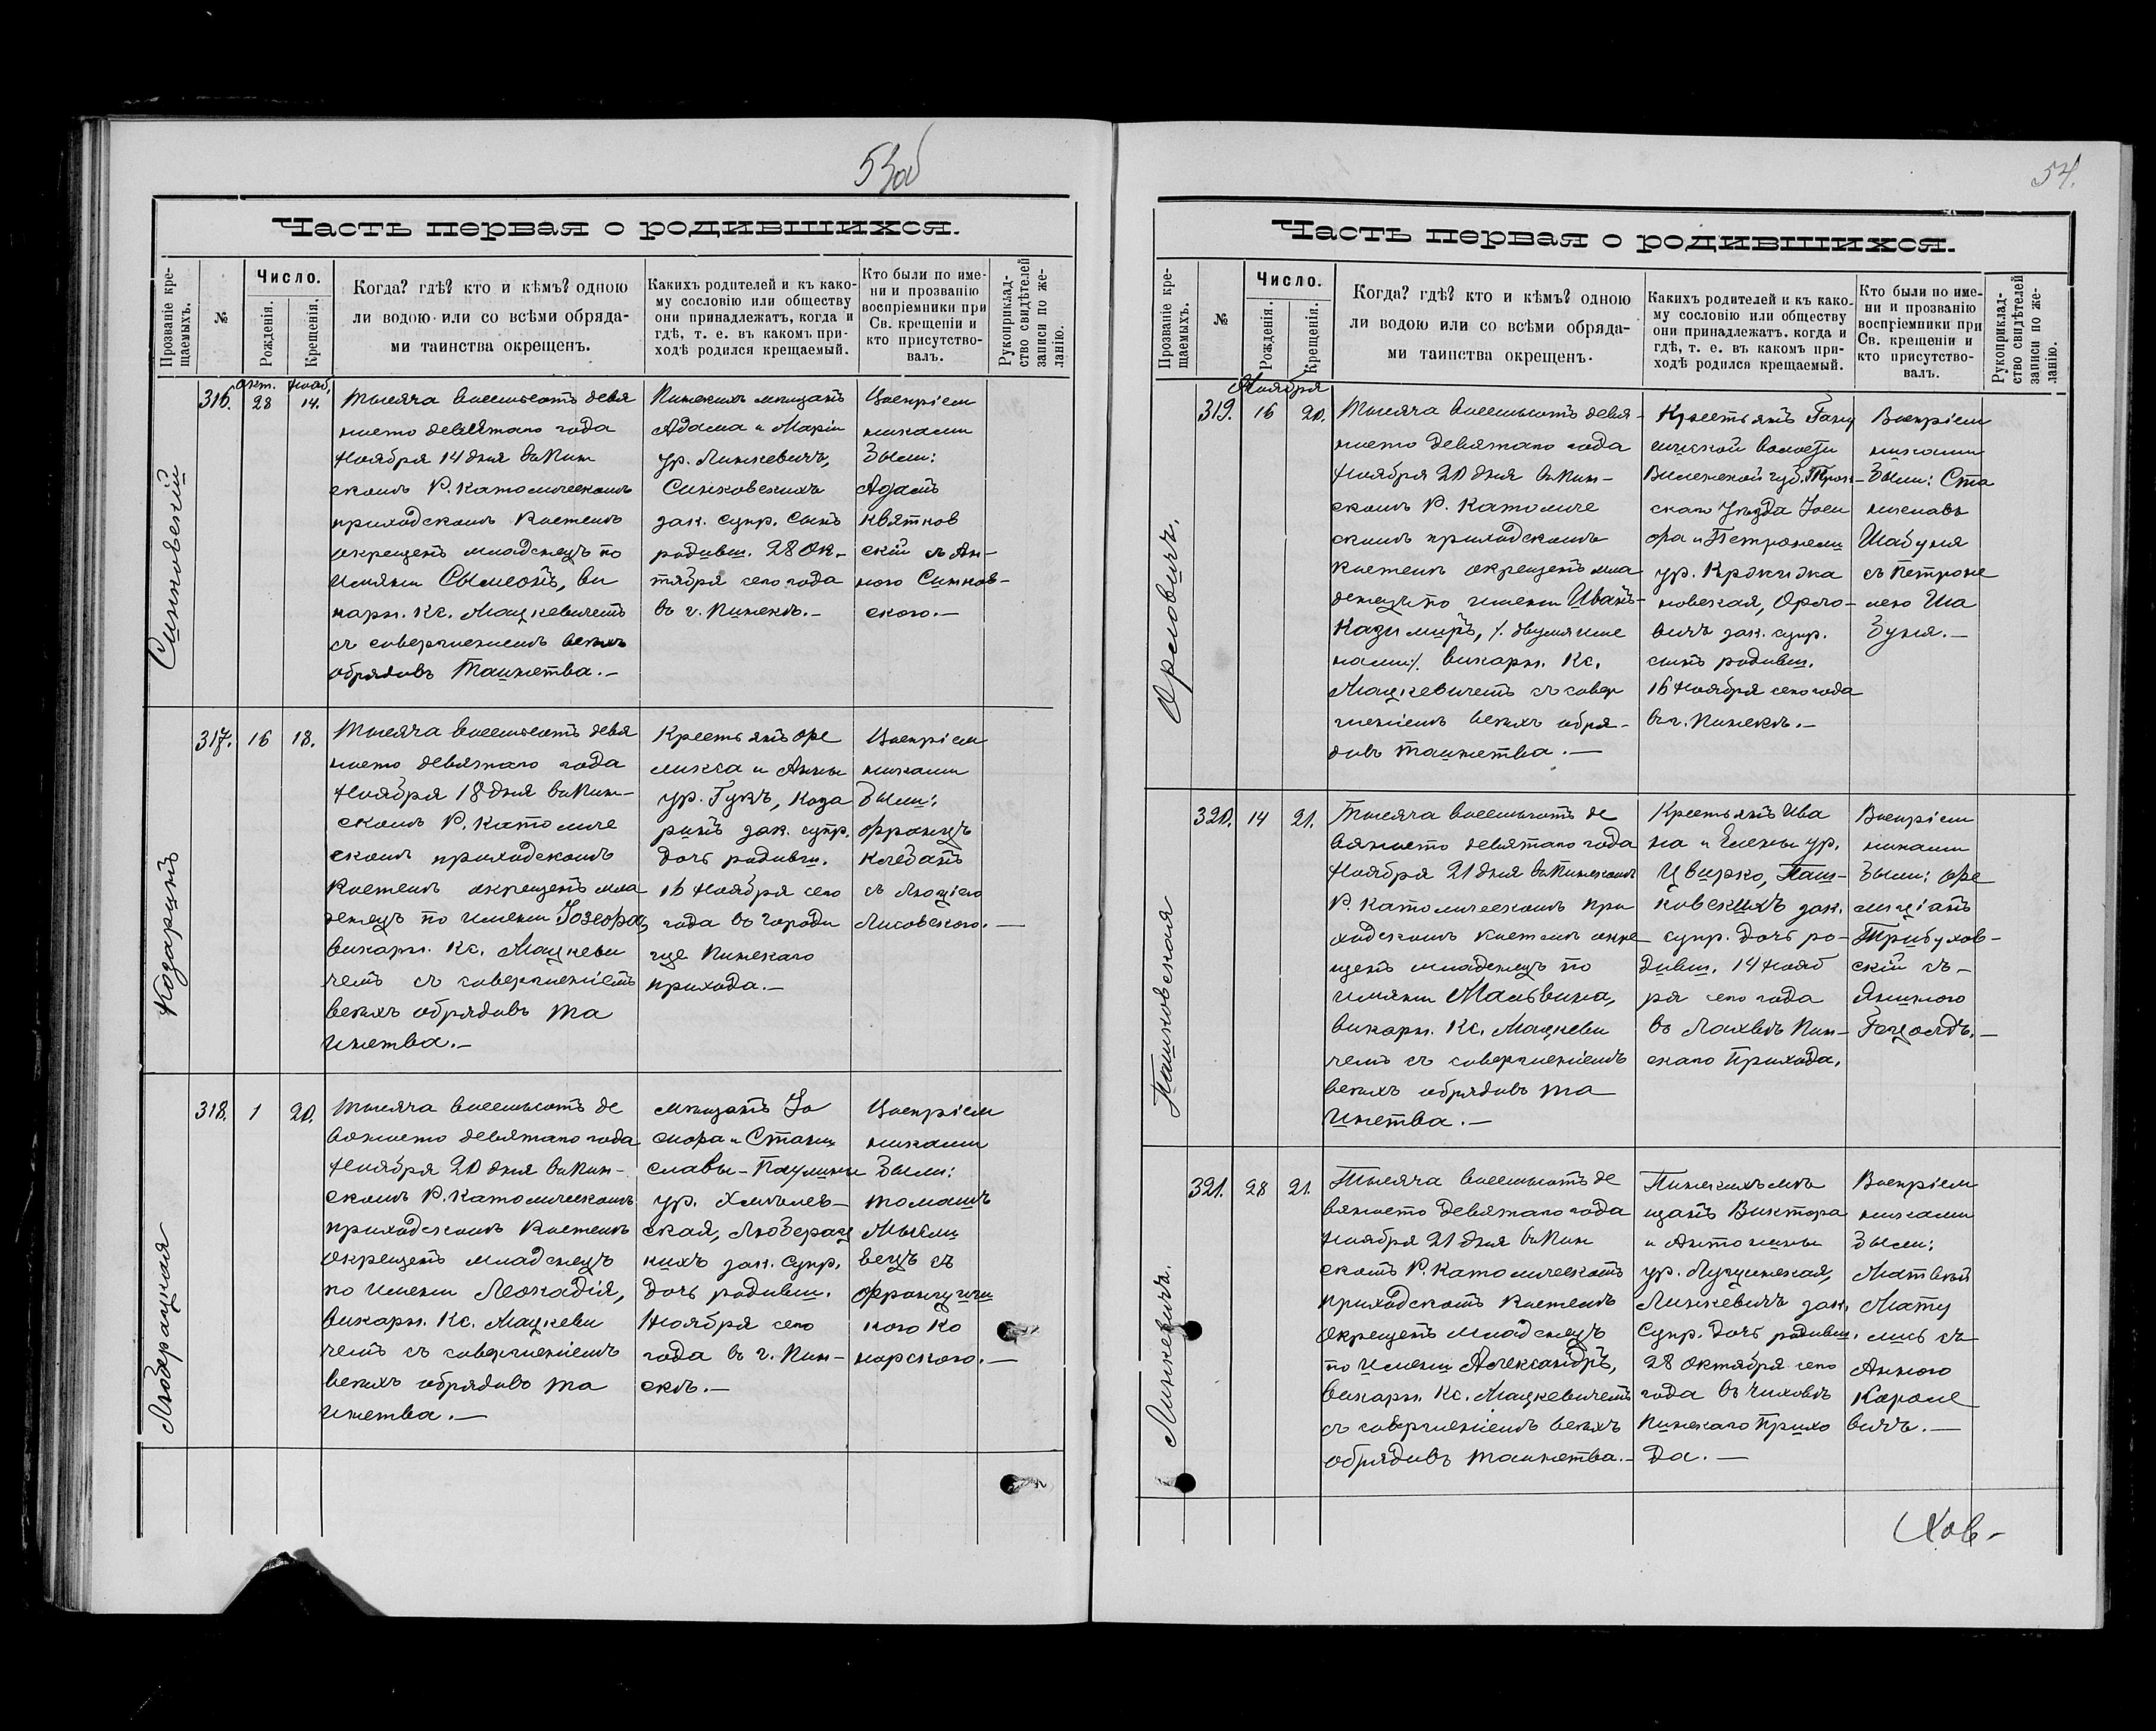 53об
Часть первая о родившихся.
Прозваніе кре-
щаемыхъ.
№
Число.
Рожденія.
Крещенія.
Когда? гдѣ? кто и кѣмъ? одною
ли водою или со всѣми обряда-
ми таинства окрещенъ.
Какихъ родителей и къ како-
му сословію или обществу
они принадлежатъ, когда и
гдѣ, т. е. въ какомъ при-
ходѣ родился крещаемый.
Кто были по име-
ни и прозванію
воспріемники при
Св. крещеніи и
кто присутство-
валъ.
Рукоприклад-
ство свидѣтелей
записи по же-
ланію.
Синковскій
316.
Окт.
28
Нояб.
14.
Тысяча восемьсотъ девя
носто девятаго года
Ноября 14 дня въ Пин
скомъ Р. Католическомъ
приходскомъ костелѣ
окрещенъ младенецъ по
имени Сымеонъ, ви
карн. Кс. Мацкевичемъ
съ совершеніемъ всѣхъ
обрядовъ Таинства.—
Пинскихъ мѣщанъ
Адама и Маріи
ур. Линкевичъ,
Синковскихъ
зак. супр. сынъ
родивш. 28 Ок-
тября сего года
въ г. Пинскѣ.—
Воспріем
никами
были:
Адамъ
Квятков
скій съ Ан-
ною Синков-
скою.—
Козаринъ
317.
16
18.
Тысяча восемьсотъ девя
носто девятаго года
Ноября 18 дня въ Пин-
скомъ Р. Католиче
скомъ приходскомъ
костелѣ окрещенъ мла
денецъ по имени Іозефа,
викарн. Кс. Мацкеви
чемъ съ совершеніемъ
всѣхъ обрядовъ Та
инства.—
Крестьянъ Фе
ликса и Анны
ур. Гукъ, Коза
ринъ зак. супр.
дочь родивш.
16 Ноября сего
года въ Городи
ще Пинскаго
прихода.—
Воспріем
никами
были:
Францъ
Клебанъ
съ Люціею
Лисовскою.—
Люберацкая
318.
1
20.
Тысяча восемьсотъ де
вяносто девятаго года
Ноября 20 дня въ Пин-
скомъ Р. Католическомъ
приходскомъ костелѣ
окрещенъ младенецъ
по имени Леокадія,
викарн. Кс. Мацкеви
чемъ съ совершеніемъ
всѣхъ обрядовъ та
инства.—
мѣщанъ Іо
сифа и Стани
славы-Паулины
ур. Хмѣлев-
ская, Любарац
кихъ зак. супр.
дочь родивш.
Ноября сего
года въ г. Пин-
скѣ.—
Воспріем
никами
были:
Томашъ
Мысли
вецъ съ
Францишк
кою Ко
морскою.—
54.
Часть первая о родившихся.
Прозваніе кре-
щаемыхъ.
№
Число.
Рожденія.
Крещенія.
Когда? гдѣ? кто и кѣмъ? одною
ли водою или со всѣми обряда-
ми таинства окрещенъ.
Какихъ родителей и къ како-
му сословію или обществу
они принадлежатъ. когда и
гдѣ, т. е. въ какомъ при-
ходѣ родился крещаемый.
Кто были по име-
ни и прозванію
воспріемники при
Св. крещеніи и
кто присутство-
валъ.
Рукоприклад-
ство свидѣтелей
записи по же-
ланію.
Орловичъ.
319.
Ноября
16
20.
Тысяча восемьсотъ девя-
носто девятаго года
Ноября 20 дня въ Пин-
скомъ Р. Католиче
скомъ приходскомъ
костелѣ окрещенъ мла
денецъ по имени Иванъ-
Казимиръ, /. двумя име
нами/. викарн. Кс.
Мацкевичемъ съ совер
шеніемъ всѣхъ обря-
довъ таинства.—
Крестьянъ Гану
шишской волости
Виленской губ. Трок-
скаго уѣзда Іоси
фа и Петронели
ур. Крокидка
новская, Орло-
вичъ зак. супр.
сынъ родивш.
16 Ноября сего года
въ г. Пинскѣ.—
Воспріем
никами
были: Ста
ниславъ
Шабуня
съ Петроне
лею Ша
буня.—
Пашковская
320.
14
21.
Тысяча восемьсотъ де
вяносто девятаго года
Ноября 21 дня въ Пинскомъ
Р. Католическомъ при
ходскомъ костелѣ окре
щенъ младенецъ по
имени Мальвина,
викарн. Кс. Мацкеви
чемъ съ совершеніемъ
всѣхъ обрядовъ та
инства.—
Крестьянъ Ива
на и Елены ур.
Цвирко, Паш-
ковскихъ зак.
супр. дочь ро-
дивш. 14 Нояб
ря сего года
въ Лахвѣ Пин-
скаго прихода.
Воспріем
никами
были: Фе
лиціанъ
Трибухов-
скій съ-
Яниною
Гецольдъ.—
Линкевичъ.
321.
28
21.
Тысяча восемьсотъ де
вяносто девятаго года
Ноября 21 дня въ Пин
скомъ Р. Католическомъ
приходскомъ костелѣ
окрещенъ младенецъ
по имени Александръ,
викарн. Кс. Мацкевичемъ
съ совершеніемъ всѣхъ
обрядовъ таинства.—
Пинскихъ мѣ
щанъ Виктора
и Антонины
ур. Лущинская,
Линкевичъ зак.
супр. дочь родивш.
28 Октября сего
года въ Чиховѣ
Пинскаго прихо
да.—
Воспріем
никами
были:
Матвѣй
Мату
лисъ съ
Анною
Короле
вичъ.—